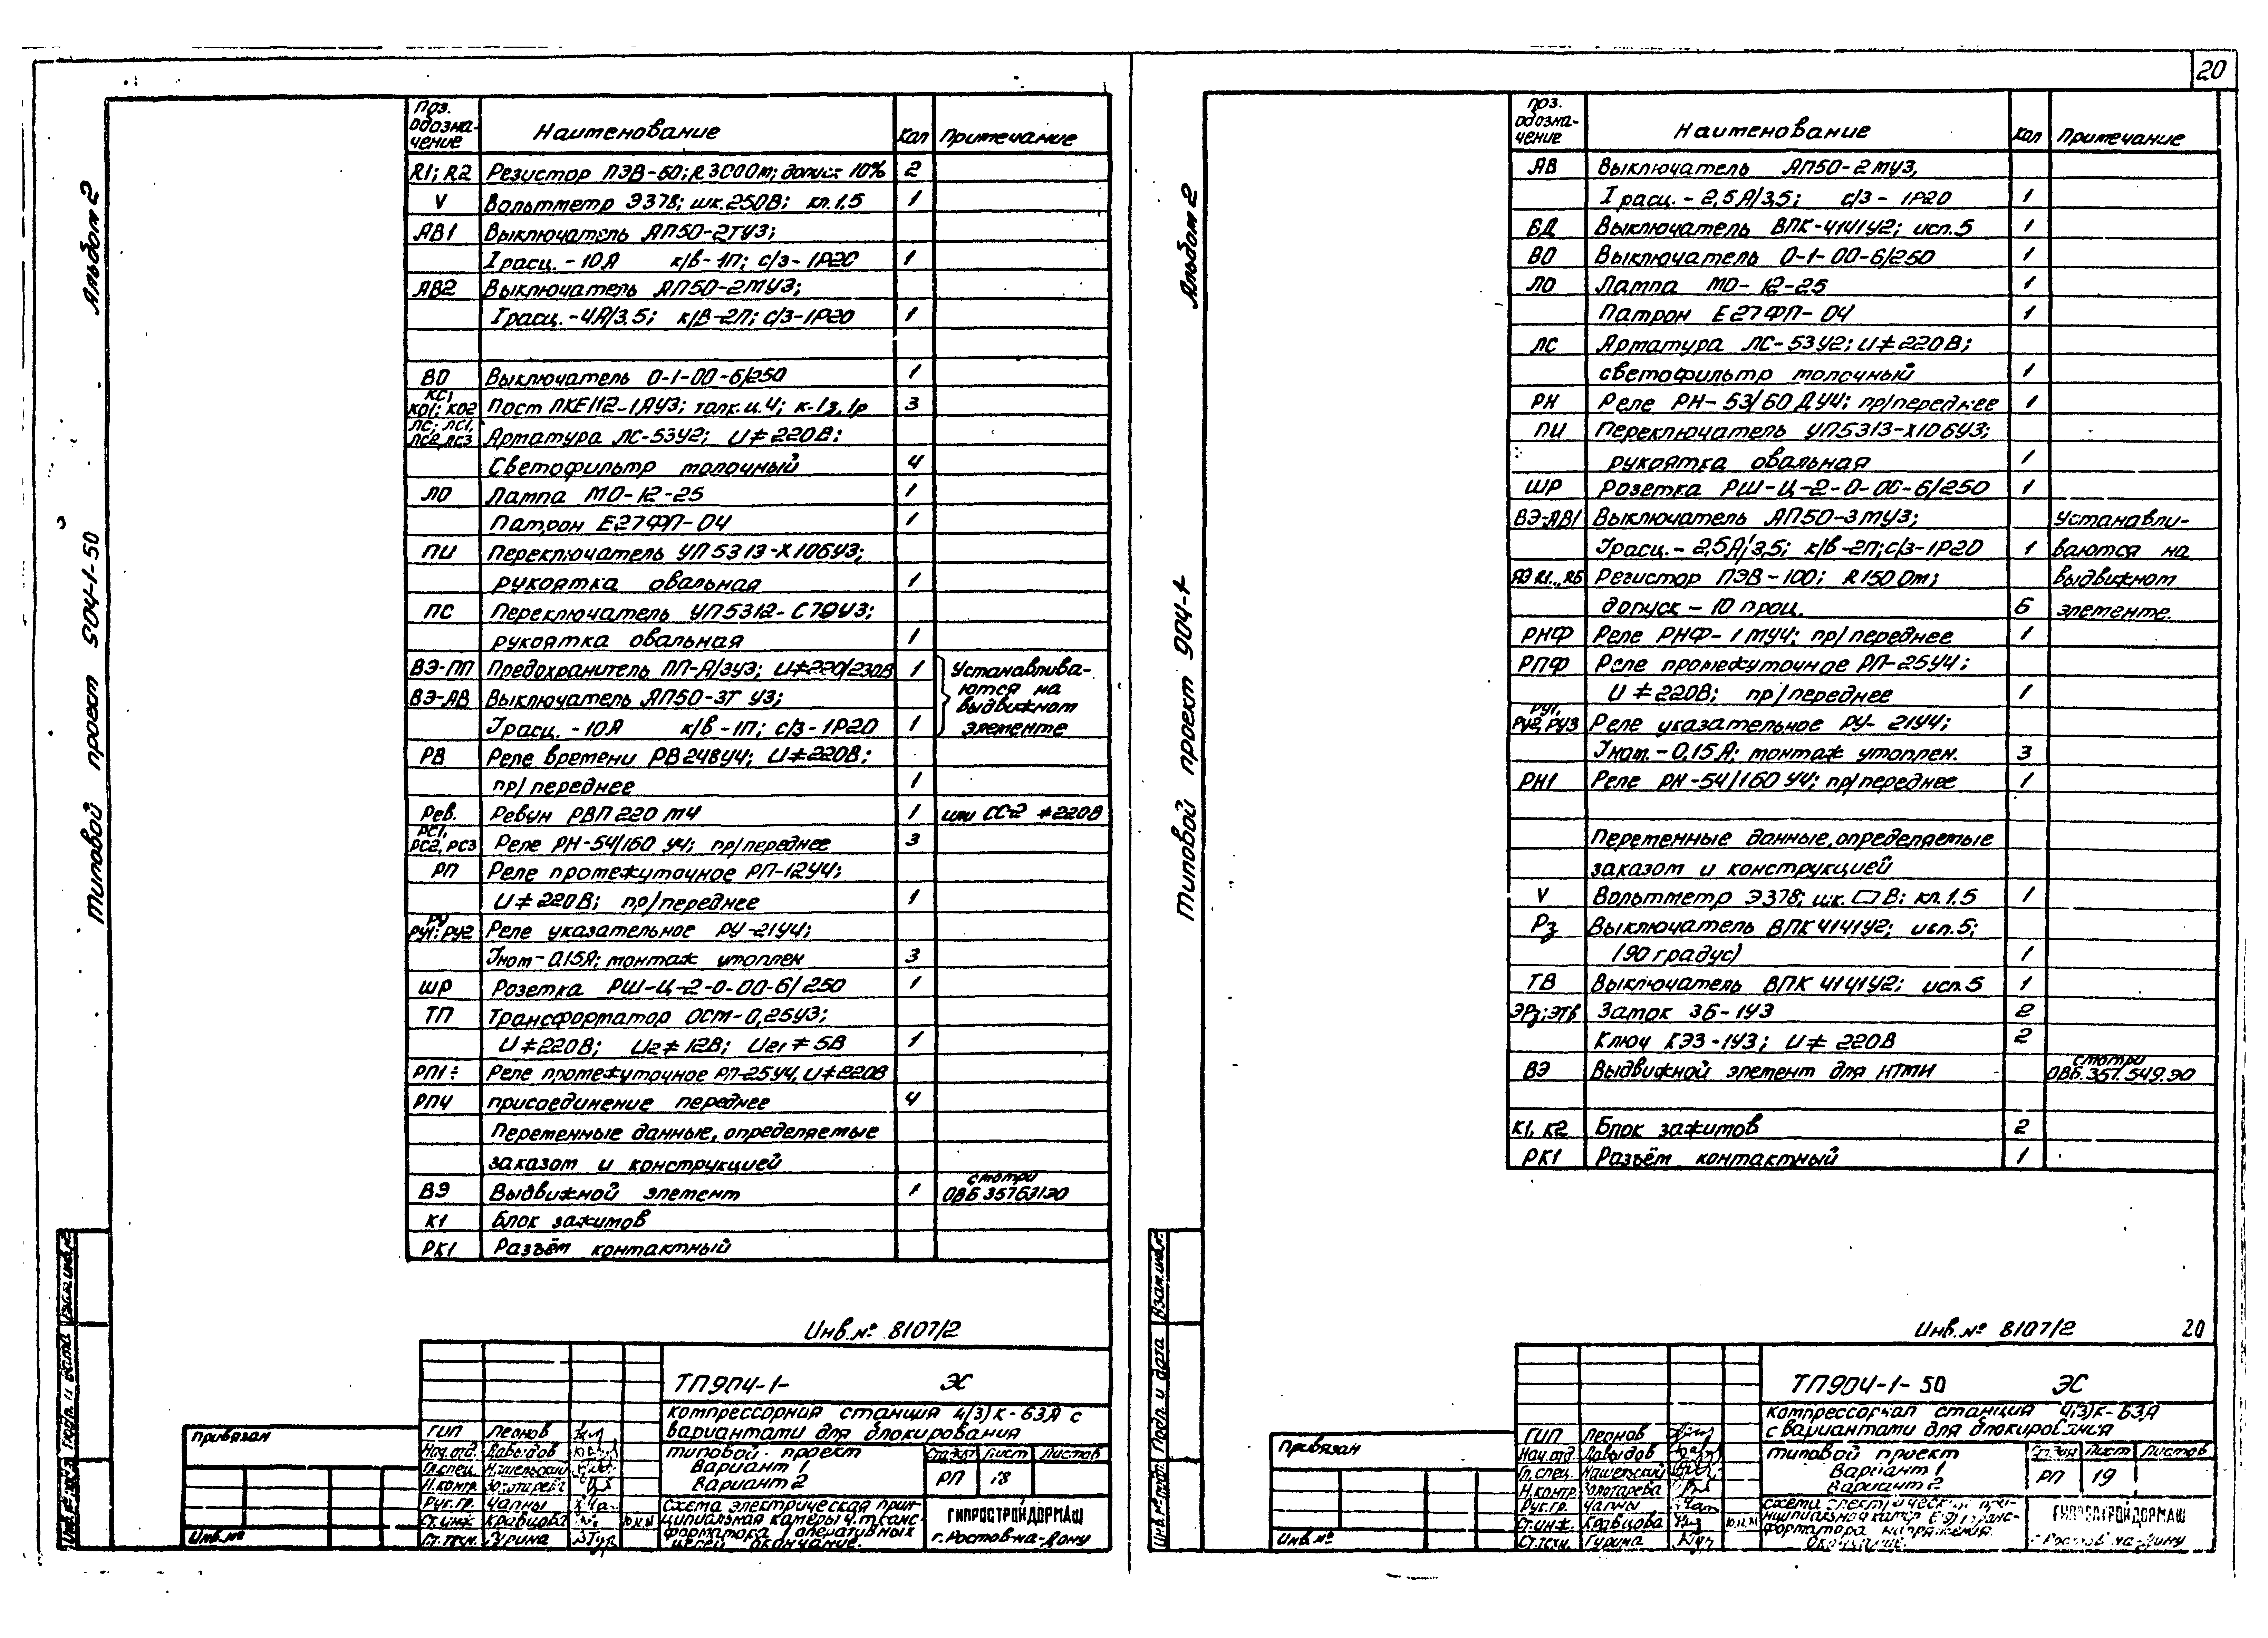 20
Альбом 2
Типовой проект 904-1-50
Поз. обозна-чение | Наименование | Кол | Примечание
R1; R2 | Резистор ПЭВ-50; R 300 Ом; допуск 10% | 2
V | Вольтметр Э378; шк. 250В; кл. 1,5 | 1
АВ1 | Выключатель АП50-2ТУ3;
Iрасц. - 10А к/в-1П; с/з-1Р20 | 1
АВ2 | Выключатель АП50-2МУ3;
Iрасц. - 4А/3,5; к/в-2П; с/з-1Р20 | 1
ВО | Выключатель 0-1-00-6/250 | 1
КС; КО1; КО2 | Пост ПКЕ112-1АУ3; толк. и. Ч; к-1з, 1р | 3
ЛС; ЛС1, ЛС2, ЛС3 | Арматура ЛС-53У2; U≠220В;
Светофильтр молочный | 4
ЛО | Лампа МО-12-25 | 1
Патрон Е27ФП-04 | 1
ПИ | Переключатель УП5313-Х106У3;
рукоятка овальная | 1
ПС | Переключатель УП5312-С79У3;
рукоятка овальная | 1
ВЭ-ПП | Предохранитель ПП-А/3У3; U≠220/230В | 1 | Устанавлива-
ВЭ-АВ | Выключатель АП50-3Т У3; | ются на выдвижном
Iрасц. - 10А к/в-1П; с/з-1Р20 | 1 | элементе
РВ | Реле времени РВ248У4; U≠220В;
пр/переднее | 1
Рев. | Ревун РВП220 М4 | 1 | или СС-2 ≠220В
РС1, РС2, РС3 | Реле РН-54/160 У4; пр/переднее | 3
РП | Реле промежуточное РП-12У4;
U≠220В; пр/переднее | 1
РУ РУ1; РУ2 | Реле указательное РУ-21У4;
Iном-0,15А; монтаж утоплен | 3
ШР | Розетка РШ-Ц-2-0-00-6/250 | 1
ТП | Трансформатор ОСМ-0,25У3;
U≠220В; U2≠12В; U21≠5В | 1
РП1÷ | Реле промежуточное РП-25У4, U≠220В
РП4 | присоединение переднее | 4
Переменные данные, определяемые
заказом и конструкцией
ВЭ | Выдвижной элемент | 1 | смотри ОВБ.357.631ЭО
К1 | Блок зажимов
РК1 | Разъём контактный
Инв. № 8107/2
ТП904-1- ЭС
Компрессорная станция 4(3)К-63А с
вариантами для блокирования
ГИП Леонов
Нач.отд. Давыдов
Гл.спец. Нашельский
Н.контр. Золотарева
Рук.гр. Чапны
Ст.инж. Кравцова
Ст.техн. Гурина
Типовой проект
Вариант 1
Вариант 2
Стадия Лист Листов
РП 18
Схема электрическая прин-
ципиальная камеры 4. транс-
форматора оперативных
цепей. Окончание.
ГИПРОСТРОЙДОРМАШ
г. Ростов-на-Дону
Привязан
Инв.№
Взам.инв.№
Подп. и дата
Инв.№ подл.
Альбом 2
Типовой проект 904-1
Поз. обозна-чение | Наименование | Кол | Примечание
АВ | Выключатель АП50-2МУ3,
I расц. - 2,5А/3,5; с/з - 1Р20 | 1
БД | Выключатель ВПК-4141У2; исп.5 | 1
ВО | Выключатель 0-1-00-6/250 | 1
ЛО | Лампа МО-12-25 | 1
Патрон Е27ФП-04 | 1
ЛС | Арматура ЛС-53У2; U≠220В;
светофильтр молочный | 1
РН | Реле РН-53/60 Д У4; пр/переднее | 1
ПИ | Переключатель УП5313-Х106У3;
рукоятка овальная | 1
ШР | Розетка РШ-Ц-2-0-00-6/250 | 1
ВЭ-АВ1 | Выключатель АП50-3МУ3; | Устанавли-
Iрасц. - 2,5А/3,5; к/в-2П; с/з-1Р20 | 1 | ваются на
ВЭ R1...R6 | Резистор ПЭВ-100; R 150 Ом; | выдвижном
допуск - 10 проц. | 6 | элементе.
РНФ | Реле РНФ-1МУ4; пр/переднее | 1
РПФ | Реле промежуточное РП-25У4;
U≠220В; пр/переднее | 1
РУ1, РУ2, РУ3 | Реле указательное РУ-21У4;
Iном.-0,15А; монтаж утоплен. | 3
РН1 | Реле РН-54/160 У4; пр/переднее | 1
Переменные данные, определяемые
заказом и конструкцией
V | Вольтметр Э378; шк. □ В; кл. 1,5 | 1
Рз | Выключатель ВПК4141У2; исп.5;
(90 градус) | 1
ТВ | Выключатель ВПК 4141У2; исп.5 | 1
ЭРз; ЭТВ | Замок ЗБ-1У3 | 2
Ключ КЭЗ-1У3; U≠220В | 2
ВЭ | Выдвижной элемент для НТМИ | смотри ОВБ.357.549.ЭО
К1, К2 | Блок зажимов | 2
РК1 | Разъём контактный | 1
Инв. № 8107/2 20
ТП904-1-50 ЭС
Компрессорная станция 4(3)К-63А
с вариантами для блокирования
ГИП Леонов
Нач.отд. Давыдов
Гл.спец. Нашельский
Н.контр. Золотарева
Рук.гр. Чапны
Ст.инж. Кравцова
Ст.техн. Гурина
Типовой проект
Вариант 1
Вариант 2
Стадия Лист Листов
РП 19
Схема электрическая прин-
ципиальная камер транс-
форматора напряжения.
Окончание.
ГИПРОСТРОЙДОРМАШ
г. Ростов-на-Дону
Привязан
Инв.№
Взам.инв.№
Подп. и дата
Инв.№ подл.